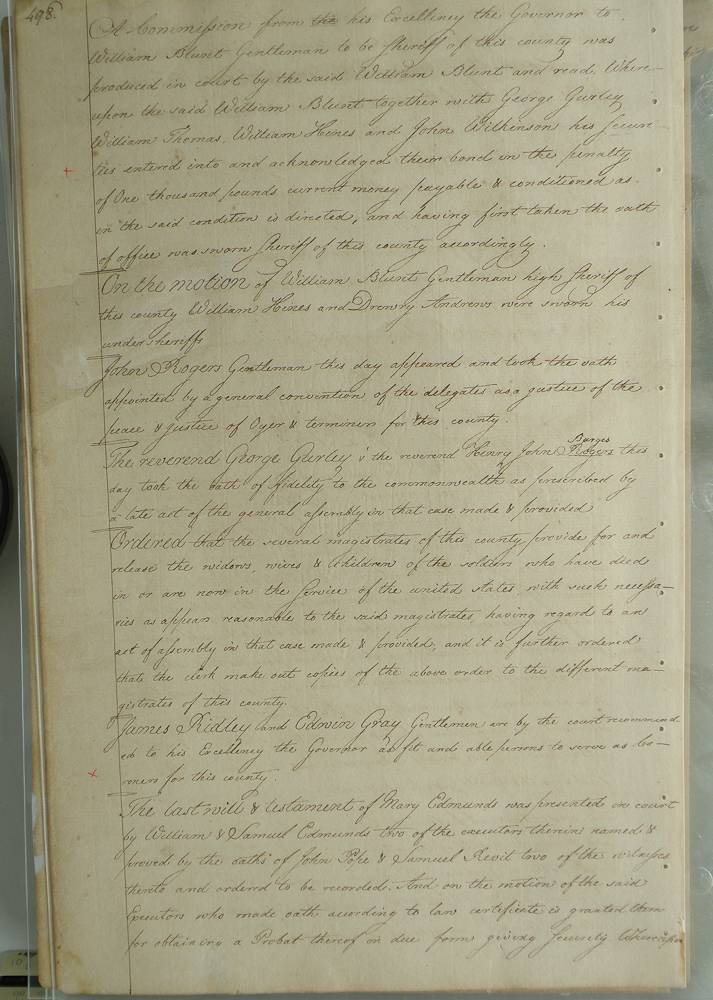 498.
A Commission from the his Excellency the Governor to
William Blunt Gentleman to be Sheriff of this county was
produced in court by the said William Blunt and read, Where-
upon the said William Blunt together with George Gurley
William Thomas, William Hines and John Wilkinson his secure
ties entered into and acknowledged their bond in the penalty
of One thousand pounds current money payable & conditioned as
in the said condition is directed, and having first taken the oath
of office was sworn Sheriff of this county accordingly.
On the motion of William Blunt Gentleman high Sheriff of
this county William Hines and Drewry Andrews were sworn his
undersheriffs
John Rogers Gentleman this day appeared and took the oath
appointed by a general convention of the delegates as a justice of the
peace & justice of Oyer & terminer for this county.
Burges
The reverend George Gurley & the reverend Henry John Rogers this
day took the oath of fidelity to the commonwealth as prescribed by
a late act of the general assembly in that case made & provided
Ordered that the several magistrates of this county provide for and
release the widows, wives & children of the soldiers who have died
in or are now in the Service of the united states with such necessa-
ries as appear reasonable to the said magistrates, having regard to an
act of assembly in that case made & provided, and it is further ordered
that the clerk make out copies of the above order to the different ma-
gistrates of this county.
James Ridley and Edwin Gray Gentlemen are by the court recommend
ed to his Excellency the Governor as fit and able persons to serve as Co-
roners for this county.
The last will & testament of Mary Edmunds was presented in court
by William & Samuel Edmunds two of the executors therein named &
proved by the oaths of John Pope & Samuel two of the witnesses
thereto and ordered to be recorded. And on the motion of the said
Executors who made oath according to law certificate is granted them
for obtaining a Probat thereof in due form giving security Whereupon